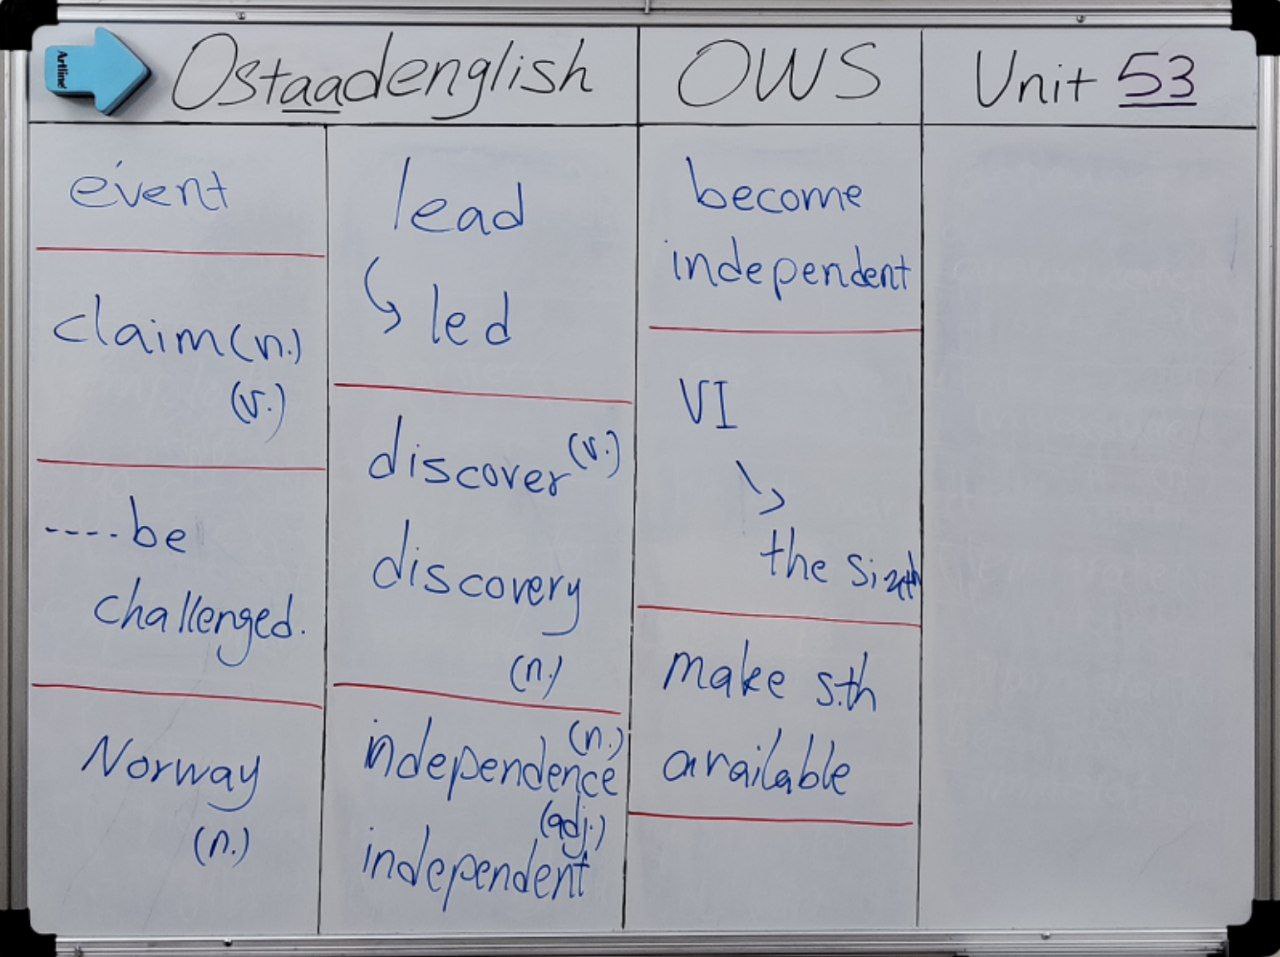 Artline
Ostaadenglish
OWS
Unit 53
event
claim (n.)
(v.)
----be
challenged.
Norway
(n.)
lead
led
discover (v.)
discovery
(n.)
independence (n.)
independent (adj.)
become
independent
VI
the sixth
make s.th
available